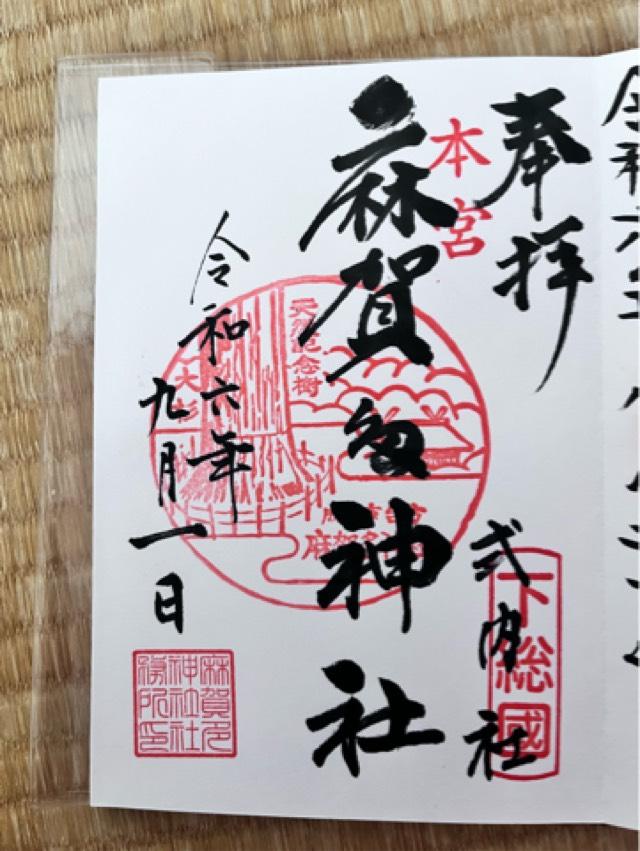 奉拝
本宮
麻賀多神社
式内社
下総國
天然記念樹
大杉
令和六年
九月一日
麻賀多
神社社
務所印